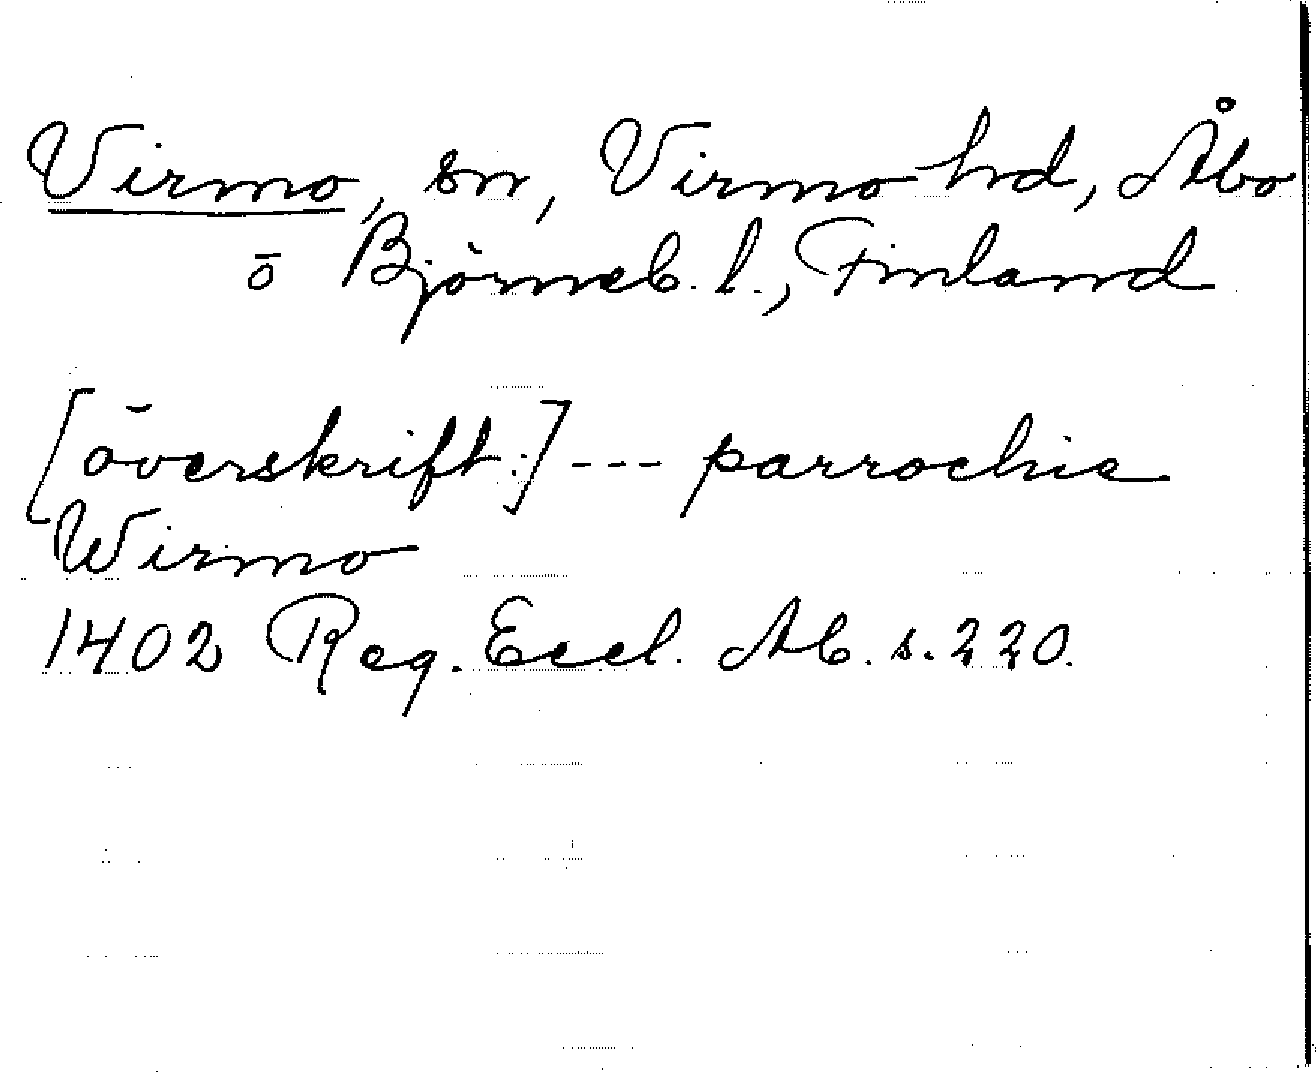 Virmo, sn, Virmo hd, Åbo
o Björneb. l., Finland
[överskrift:] --- parrochie
Wirmo
1402 Reg. Eccl. Ab. s. 220.